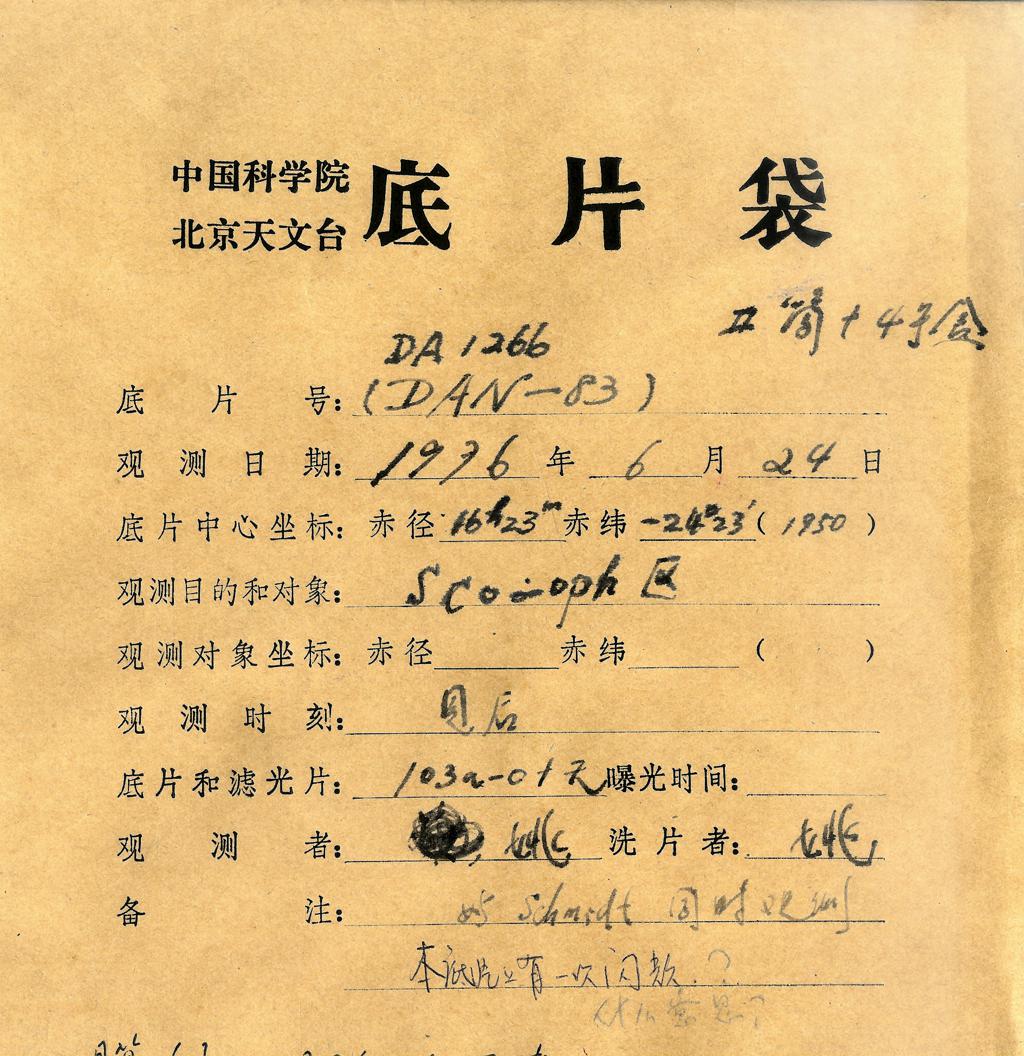 中国科学院
北京天文台
底片袋
II筒+4号盒
DA 1266
底片号:(DAN-83)
观测日期:1976年6月24日
底片中心坐标:赤径16h23m赤纬-24°23′(1950)
观测目的和对象:Sco-oph区
观测对象坐标:赤径 赤纬 ( )
观测时刻:见后
底片和滤光片:103a-O+无 曝光时间:
观测者:姚 洗片者:姚
备注:与Schmidt同时观测
本底片上有一次闪
什么意思?